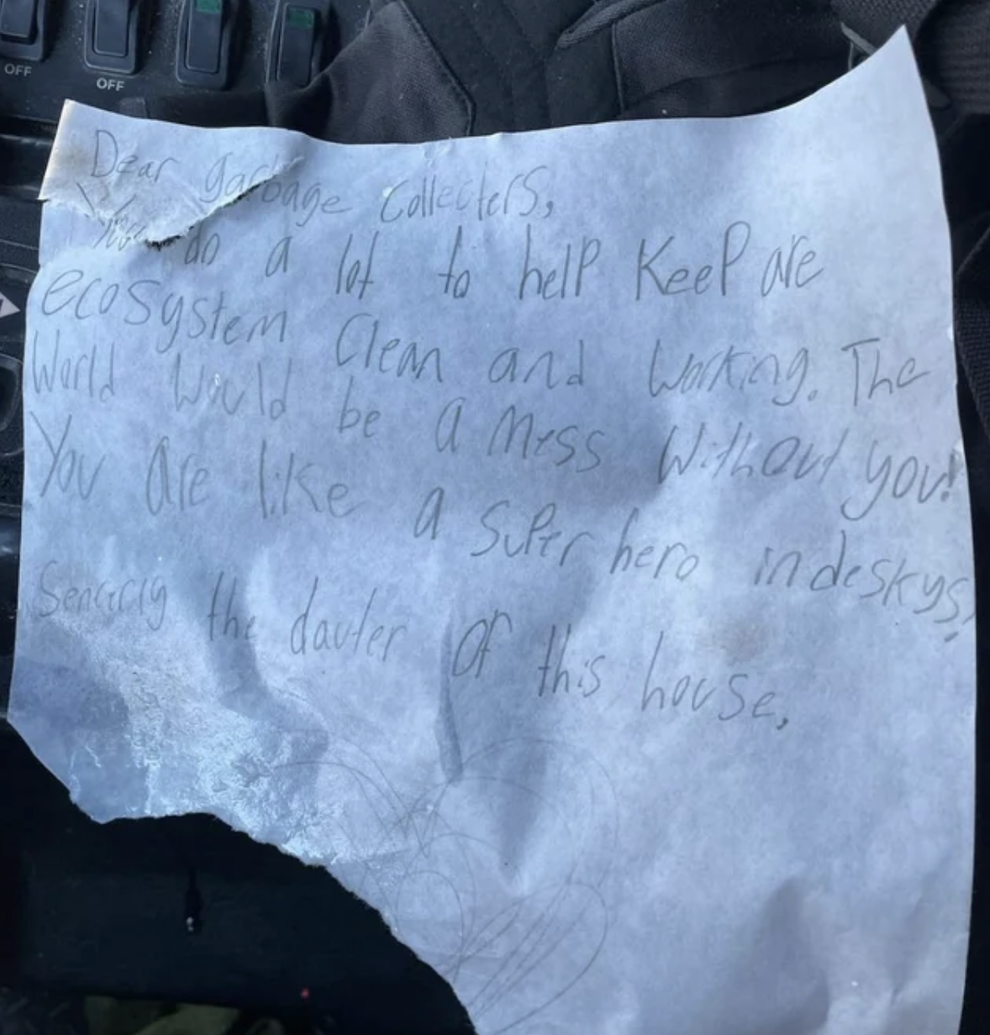 OFF
OFF
Dear garbage collecters,
You do a lot to help keep are
ecosystem clean and working. The
World Would be a mess Without you!
You are like a super hero indeskys!
Sencirly the dauter of this house,